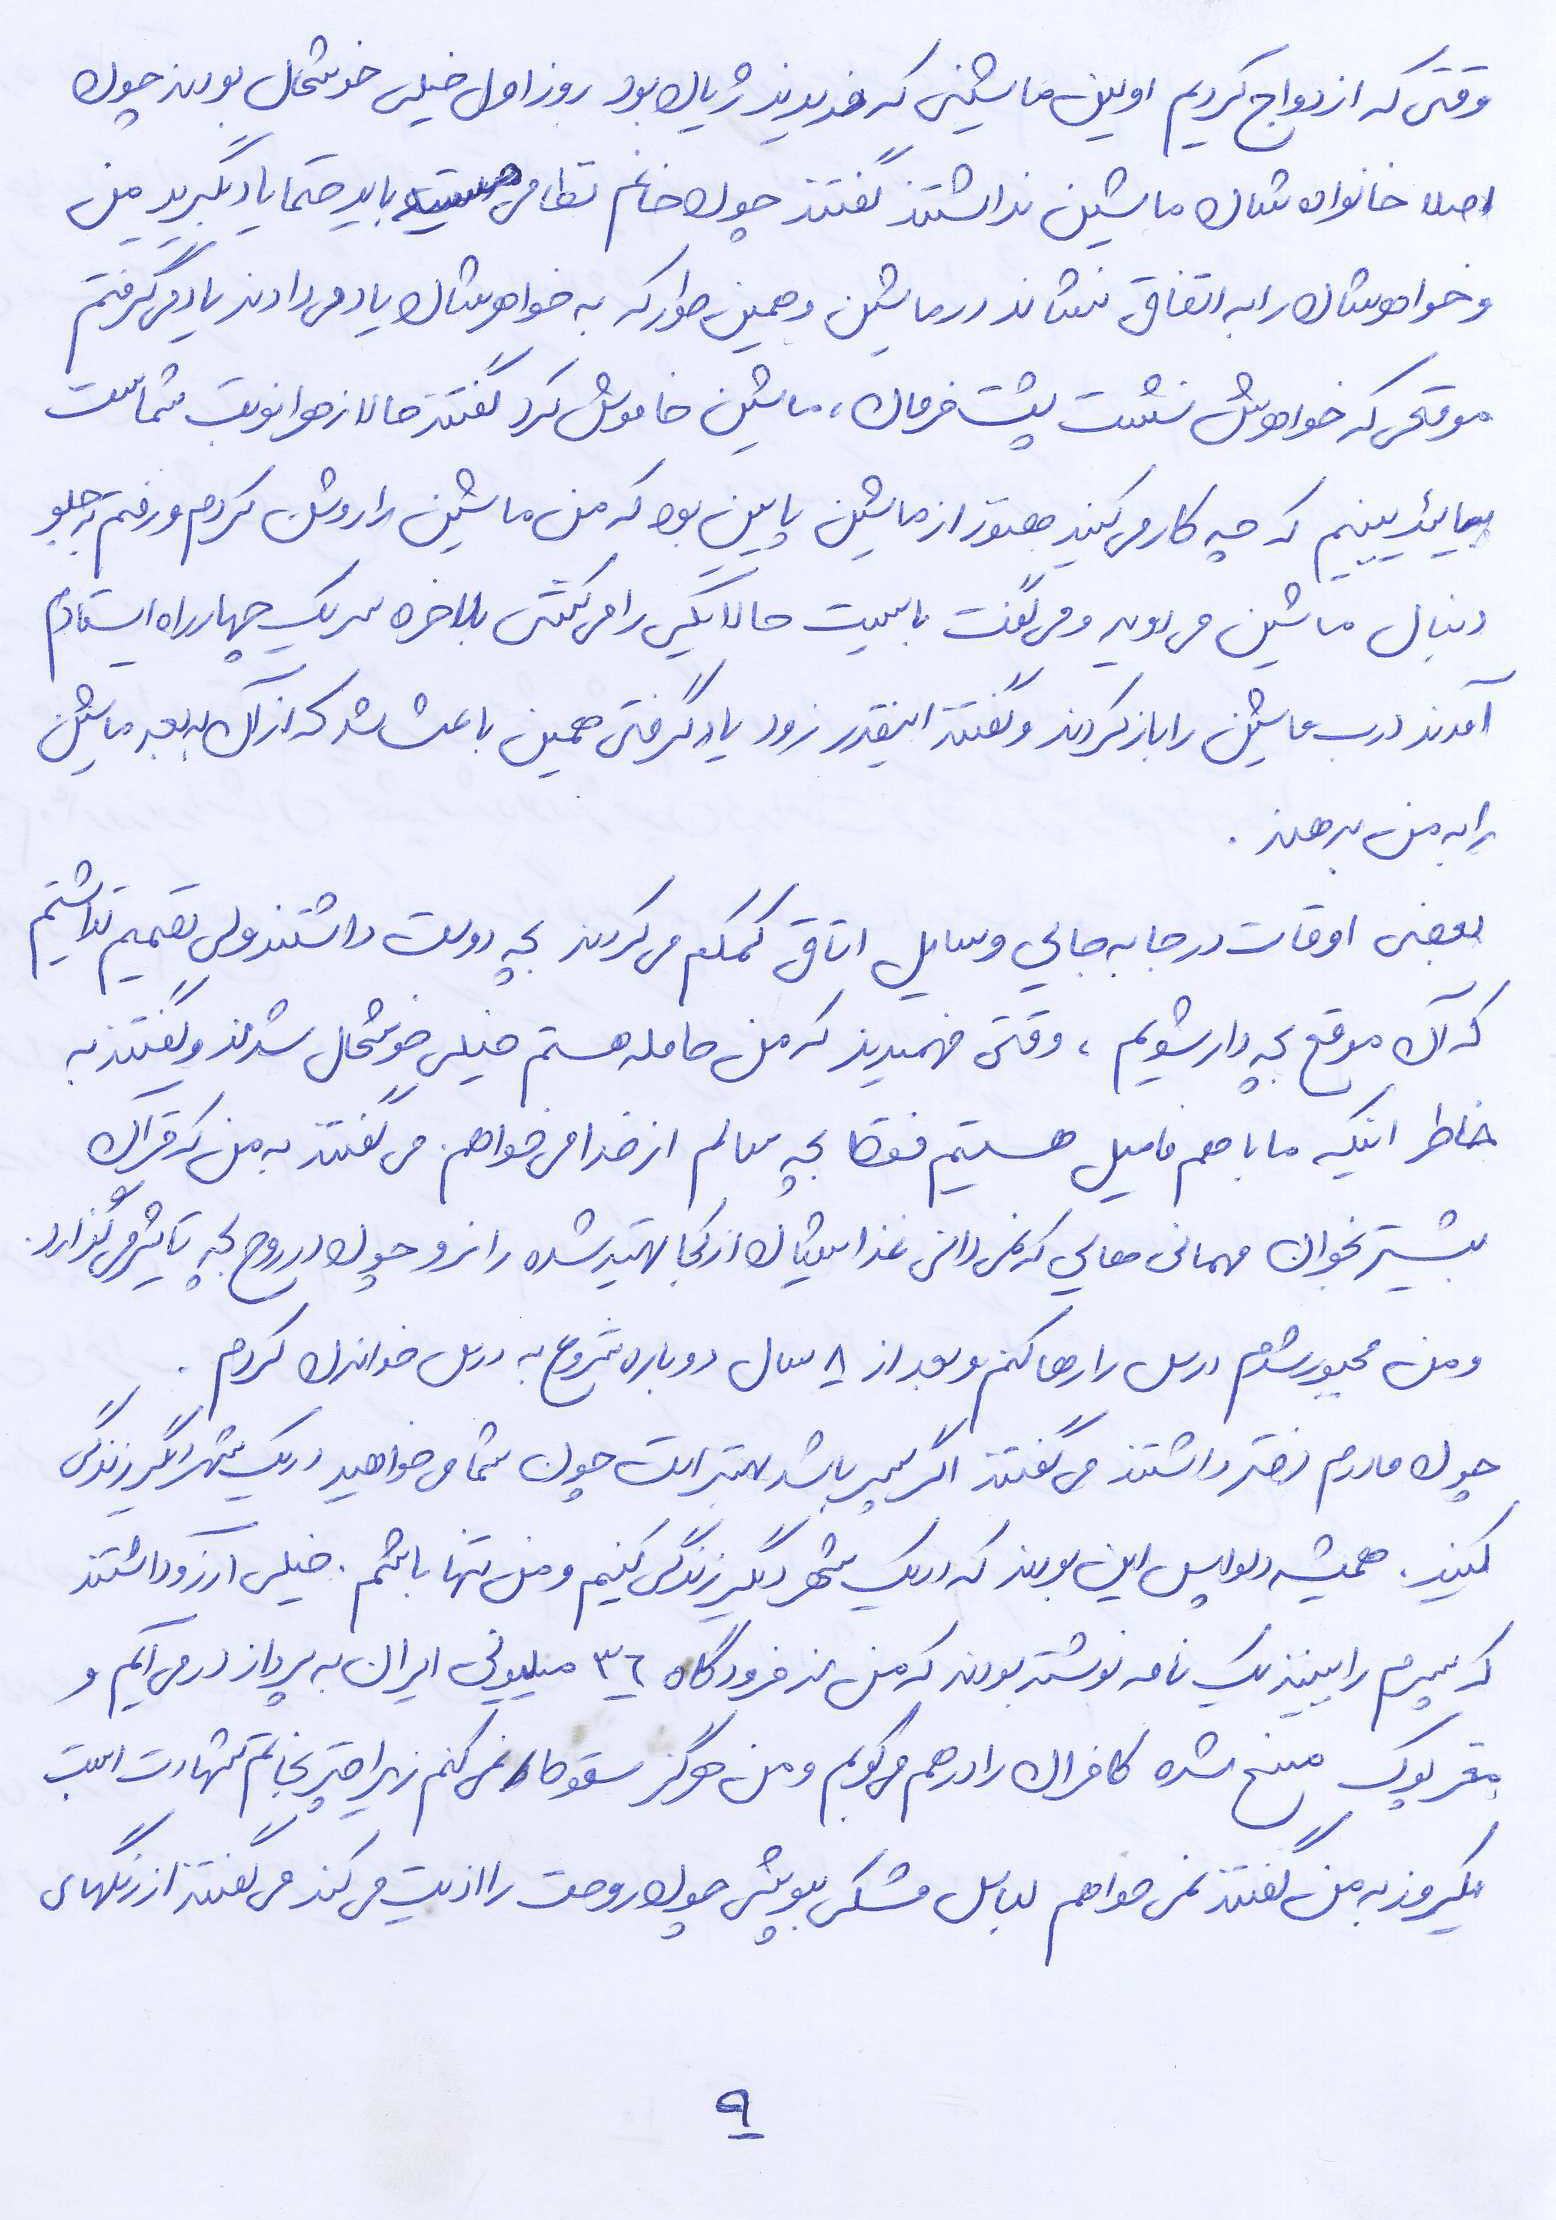 وقتی که ازدواج کردیم اولین ماشینی که خریدند ژیان بود روز اول خیلی خوشحال بودند چون
اصلا خانواده شان ماشین نداشتند گفتند چون خانم نظامی هستید باید حتما یاد بگیرید من
و خواهرشان را به اتفاق نشاند در ماشین و همین طور که به خواهرشان یاد می دادند یاد می گرفتم
موقعی که خواهرش نشست پشت فرمان، ماشین خاموش کرد گفتند حالا زهرا نوبت شماست
بیائید ببینم که چه کار می کنید هنوز از ماشین پایین بود که من ماشین را روشن کردم و رفتم به جلو
دنبال ماشین می دوید و می گفت بایست حالا یکی را می کشی بلاخره سر یک چهارراه ایستادم
آمدند درب ماشین را باز کردند و گفتند اینقدر زود یاد گرفتی همین باعث شد که از آن به بعد ماشین
را به من بدهند .
بعضی اوقات در جا به جایی وسایل اتاق کمکم می کردند بچه دوست داشتند ولی تصمیم نداشتیم
که آن موقع بچه دار شویم ، وقتی فهمیدند که من حامله هستم خیلی خوشحال شدند و گفتند به
خاطر اینکه ما با هم فامیل هستیم فقط بچه سالم از خدا می خواهم . می گفتند به من که قرآن
بیشتر بخوان مهمانی هایی که نمی دانی غذا یشان از کجا تهیه شده را نرو چون در روح بچه تاثیر می گذارد .
و من مجبور شدم درس را رها کنم و بعد از ۸ سال دوباره شروع به درس خواندن کردم .
چون مادرم دختر داشتند می گفتند اگر پسر باشد بهتر است چون شما می خواهید در یک شهر دیگر زندگی
کنید . همیشه دلواپس این بودند که در یک شهر دیگر زندگی کنیم و من تنها باشم . خیلی آرزو داشتند
که پسرم را ببیند یک نامه نوشته بودند که من از فرودگاه ۳۶ میلیونی ایران به پرواز در می آیم و
مغز پوک مسخ شده کافران را در هم می کوبم و من هرگز سقوط نمی کنم زیرا چتر نجاتم شهادت است
یکروز به من گفتند نمی خواهم لباس مشکی بپوشی چون روحت را اذیت می کند می گفتند از رنگهای
۹